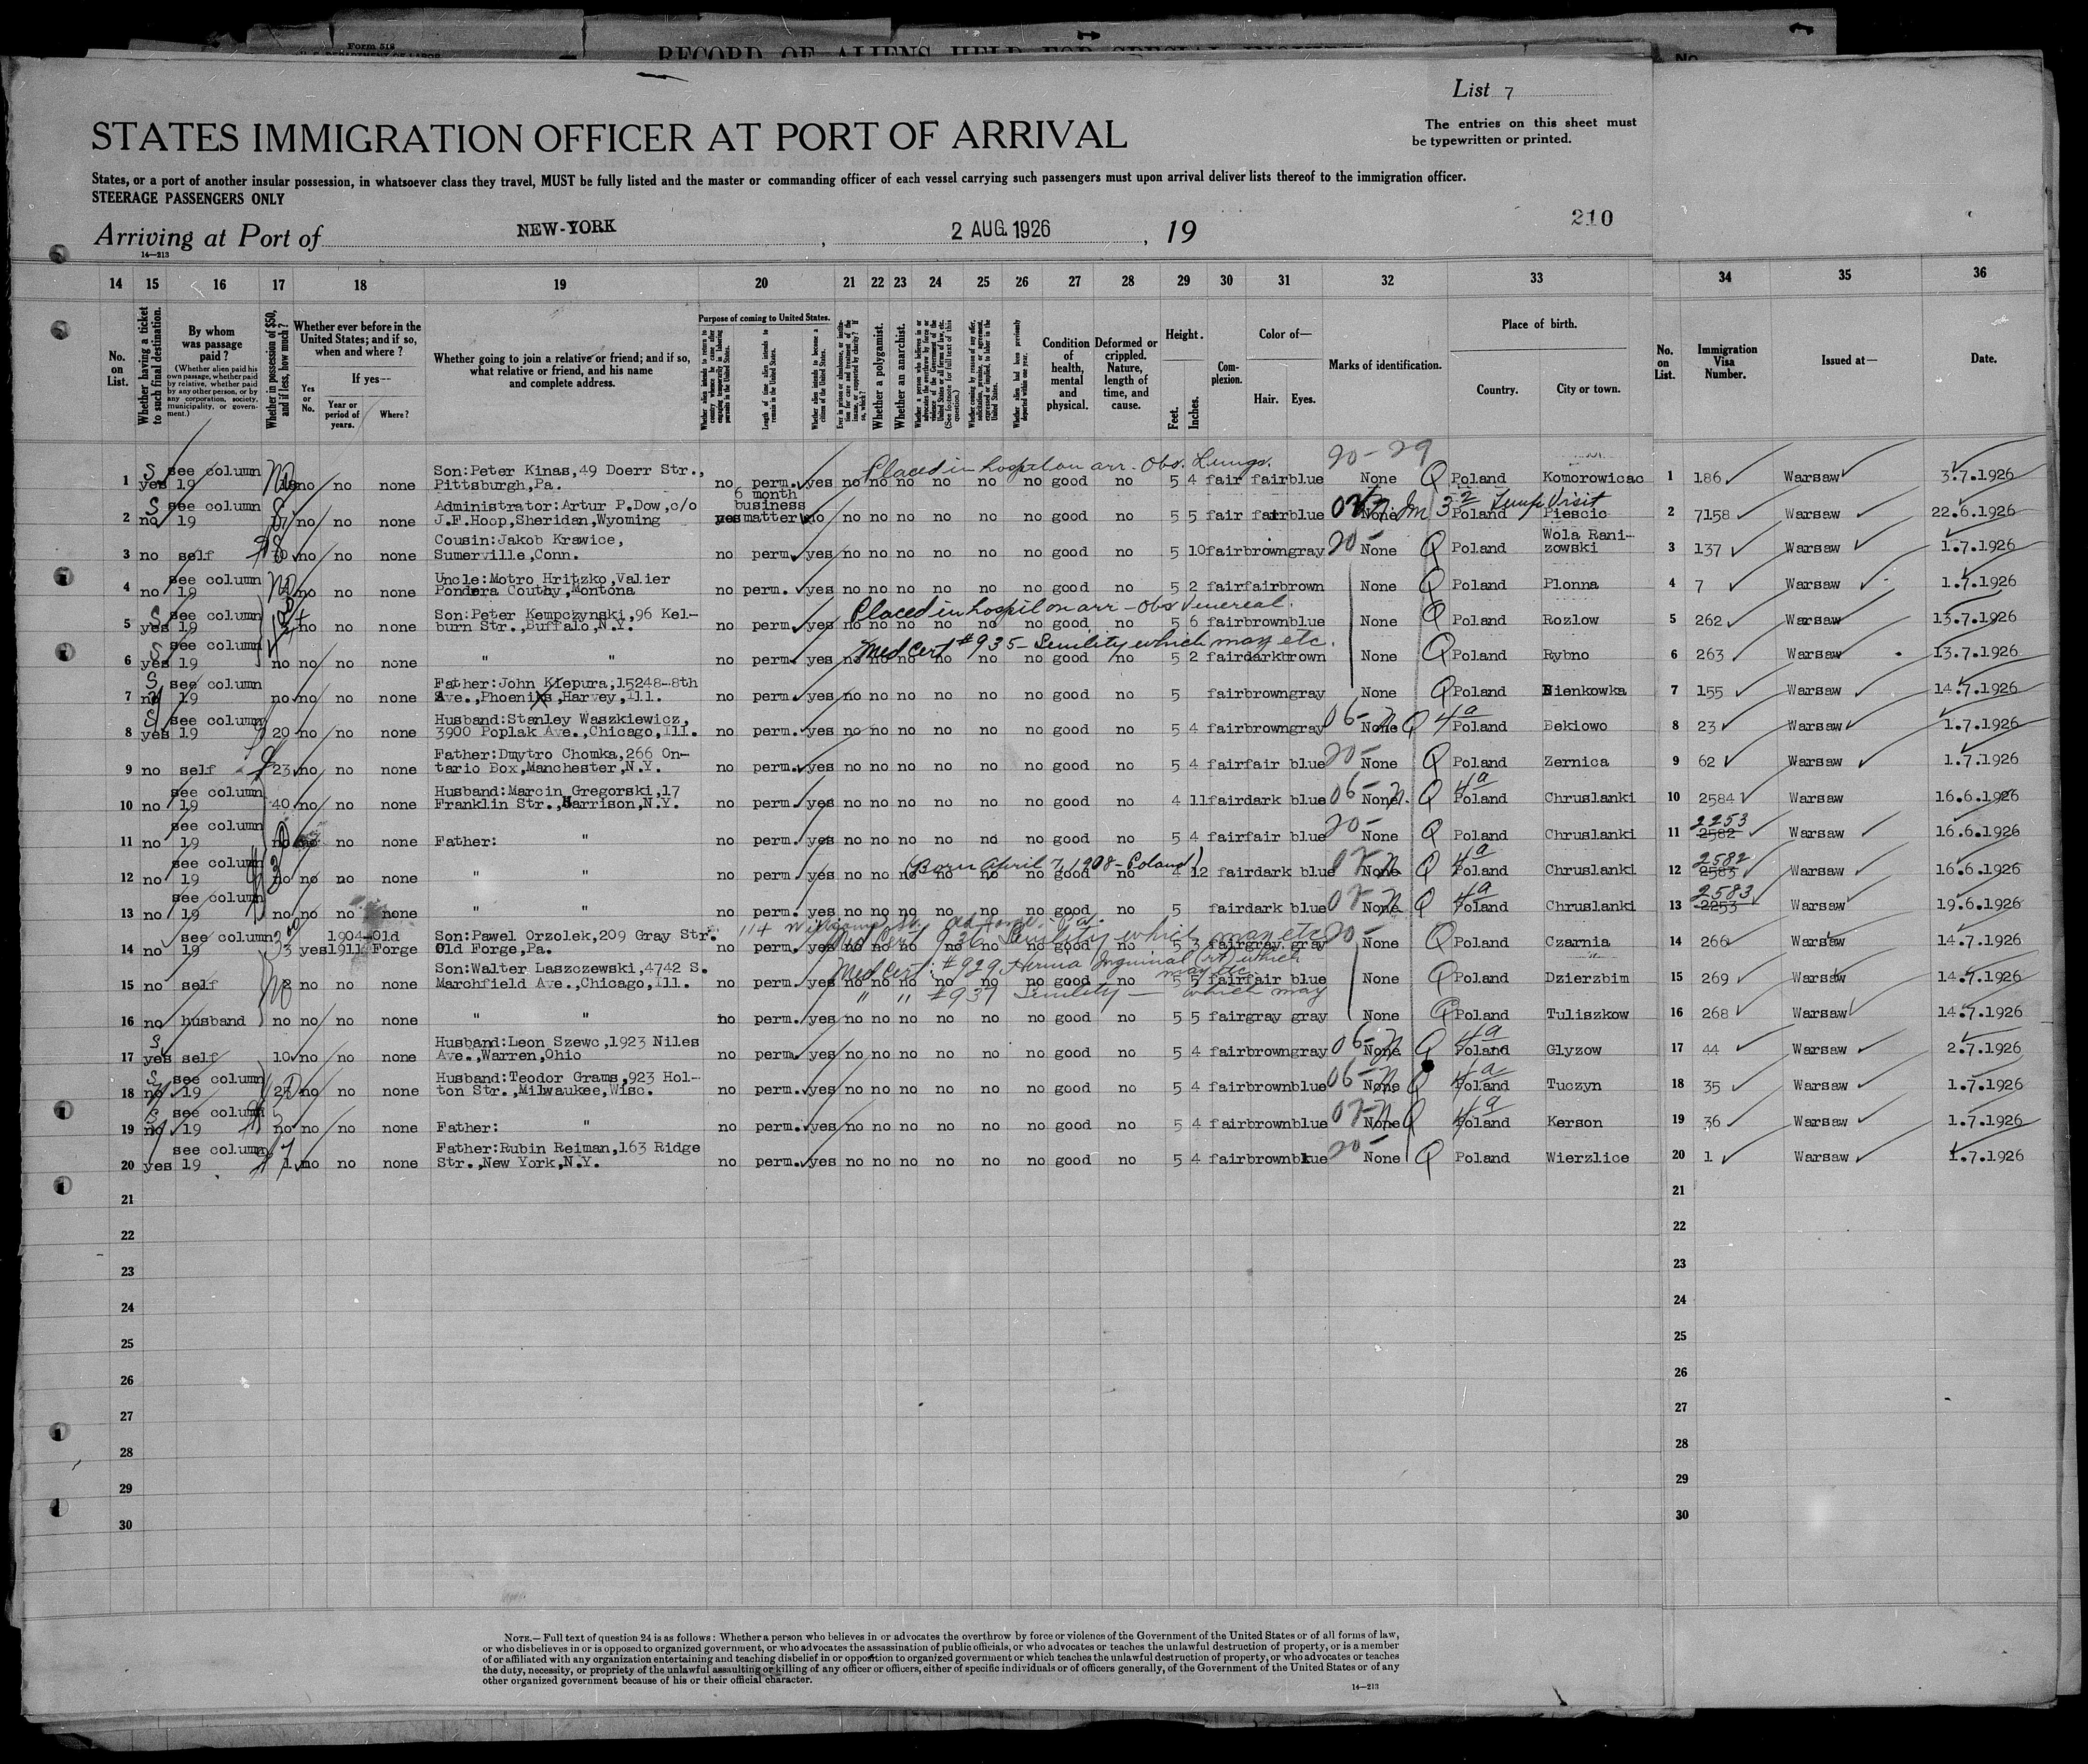 Form 518
RECORD OF ALIENS HELD FOR SPECIAL
List 7
STATES IMMIGRATION OFFICER AT PORT OF ARRIVAL
The entries on this sheet must
be typewritten or printed.
States, or a port of another insular possession, in whatsoever class they travel, MUST be fully listed and the master or commanding officer of each vessel carrying such passengers must upon arrival deliver lists thereof to the immigration officer.
STEERAGE PASSENGERS ONLY
210
Arriving at Port of NEW-YORK , 2 AUG. 1926 , 19
14—213
14 15 16 17 18 19 20 21 22 23 24 25 26 27 28 29 30 31 32 33 34 35 36
No. on List.
Whether having a ticket to such final destination.
By whom was passage paid?
(Whether alien paid his own passage, whether paid by relative, whether paid by any other person, or by any corporation, society, municipality, or government.)
Whether in possession of $50, and if less, how much?
Whether ever before in the United States; and if so, when and where?
Yes or No.
If yes—
Year or period of years.
Where?
Whether going to join a relative or friend; and if so, what relative or friend, and his name and complete address.
Purpose of coming to United States.
Length of time alien intends to remain in the United States.
Whether alien intends to become a citizen of the United States.
Whether a polygamist.
Whether an anarchist.
Condition of health, mental and physical.
Deformed or crippled. Nature, length of time, and cause.
Height.
Feet. Inches.
Complexion.
Color of—
Hair. Eyes.
Marks of identification.
Place of birth.
Country. City or town.
No. on List.
Immigration Visa Number.
Issued at—
Date.
Placed in hospital on arr. Obs. Lungs. 20-29
1 S yes see column 19 no no none Son:Peter Kinas,49 Doerr Str., Pittsburgh,Pa. no perm. yes no no no no no no good no 5 4 fair fair blue None Q Poland Komorowicac 1 186 Warsaw 3.7.1926
2 S no see column 19 no no none Administrator:Artur P.Dow,c/o J.F.Hoop,Sheridan,Wyoming yes 6 month business matter no no no no no no no good no 5 5 fair fair blue None Im 3 2 Temp Visit Poland Piescic 2 7158 Warsaw 22.6.1926
3 no self no no none Cousin:Jakob Krawice, Sumerville,Conn. no perm. yes no no no no no no good no 5 10 fair brown gray 20- None Q Poland Wola Rani-zowski 3 137 Warsaw 1.7.1926
4 no see column 19 no no none Uncle:Motro Hritzko,Valier Pondera Couthy,Montona no perm. yes no no no no no no good no 5 2 fair fair brown None Q Poland Plonna 4 7 Warsaw 1.7.1926
Placed in hospil on arr - Obs Venereal.
5 S yes see column 19 no no none Son:Peter Kempczynski,96 Kel-burn Str.,Buffalo,N.Y. no perm. yes no no no no no no good no 5 6 fair brown blue None Q Poland Rozlow 5 262 Warsaw 13.7.1926
Med Cert #935 - Senility which may etc.
6 S yes see column 19 no no no none " " no perm. yes no no no no no no good no 5 2 fair dark brown None Q Poland Rybno 6 263 Warsaw 13.7.1926
7 S see column 19 no no no none Father:John Kiepura,15248-8th Ave.,Phoenixs,Harvey,Ill. no perm. yes no no no no no no good no 5 fair brown gray None Q Poland Sienkowka 7 155 Warsaw 14.7.1926
8 S yes see column 19 20 no no none Husband:Stanley Waszkiewicz, 3900 Poplak Ave.,Chicago,Ill. no perm. yes no no no no no no good no 5 4 fair brown gray 06- None Q 4a Poland Bekiowo 8 23 Warsaw 1.7.1926
9 no self 23 no no none Father:Dmytro Chomka,266 On-tario Box,Manchester,N.Y. no perm. yes no no no no no no good no 5 4 fair fair blue 20- None Q Poland Zernica 9 62 Warsaw 1.7.1926
10 no see column 19 40 no no none Husband:Marcin Gregorski,17 Franklin Str.,Harrison,N.Y. no perm. yes no no no no no no good no 4 11 fair dark blue 06- None Q 4a Poland Chruslanki 10 2584 Warsaw 16.6.1926
11 no see column 19 no no none Father: " no perm. yes no no no no no no good no 5 4 fair fair blue 20- None Q Poland Chruslanki 11 2253 2582 Warsaw 16.6.1926
(Born April 7, 1908 - Poland)
12 no see column 19 no no no none " " no perm. yes no no no no no no good no 4 12 fair dark blue None Q 4a Poland Chruslanki 12 2582 2583 Warsaw 16.6.1926
13 no see column 19 no no no none " " no perm. yes no no no no no no good no 5 fair dark blue None Q 4a Poland Chruslanki 13 2583 2253 Warsaw 19.6.1926
114 Williams St. Old Forge, Pa.
Med Cert 936 Senility which may etc
14 no see column 19 3 yes 1904-1911 Old Forge Son:Pawel Orzolek,209 Gray Str. Old Forge,Pa. no perm. yes no no no no no no good no 5 3 fair gray gray 20- None Q Poland Czarnia 14 266 Warsaw 14.7.1926
Med Cert. #929 Hernia Inguinal (rt) which may etc
15 no self no no none Son:Walter Laszczewski,4742 S. Marchfield Ave.,Chicago,Ill. no perm. yes no no no no no no good no 5 5 fair fair blue None Q Poland Dzierzbim 15 269 Warsaw 14.7.1926
" " #937 Senility — which may
16 no husband no no no none " " no perm. yes no no no no no no good no 5 5 fair gray gray None Q Poland Tuliszkow 16 268 Warsaw 14.7.1926
17 S yes self 10 no no none Husband:Leon Szewc,1923 Niles Ave.,Warren,Ohio no perm. yes no no no no no no good no 5 4 fair brown gray 06- None Q 4a Poland Glyzow 17 44 Warsaw 2.7.1926
18 S no see column 19 25 no no none Husband:Teodor Grams,923 Hol-ton Str.,Milwaukee,Wisc. no perm. yes no no no no no no good no 5 4 fair brown blue 06- None Q 4a Poland Tuczyn 18 35 Warsaw 1.7.1926
19 S no see column 19 no no no none Father: " no perm. yes no no no no no no good no 5 4 fair brown blue None Q 4a Poland Kerson 19 36 Warsaw 1.7.1926
20 yes see column 19 1 no no none Father:Rubin Reiman,163 Ridge Str.,New York,N.Y. no perm. yes no no no no no no good no 5 4 fair brown blue 20- None Q Poland Wierzlice 20 1 Warsaw 1.7.1926
21 21
22 22
23 23
24 24
25 25
26 26
27 27
28 28
29 29
30 30
NOTE.—Full text of question 24 is as follows: Whether a person who believes in or advocates the overthrow by force or violence of the Government of the United States or of all forms of law,
or who disbelieves in or is opposed to organized government, or who advocates the assassination of public officials, or who advocates or teaches the unlawful destruction of property, or is a member
of or affiliated with any organization entertaining and teaching disbelief in or opposition to organized government or which teaches the unlawful destruction of property, or who advocates or teaches
the duty, necessity, or propriety of the unlawful assaulting or killing of any officer or officers, either of specific individuals or of officers generally, of the Government of the United States or of any
other organized government because of his or their official character.
14—213